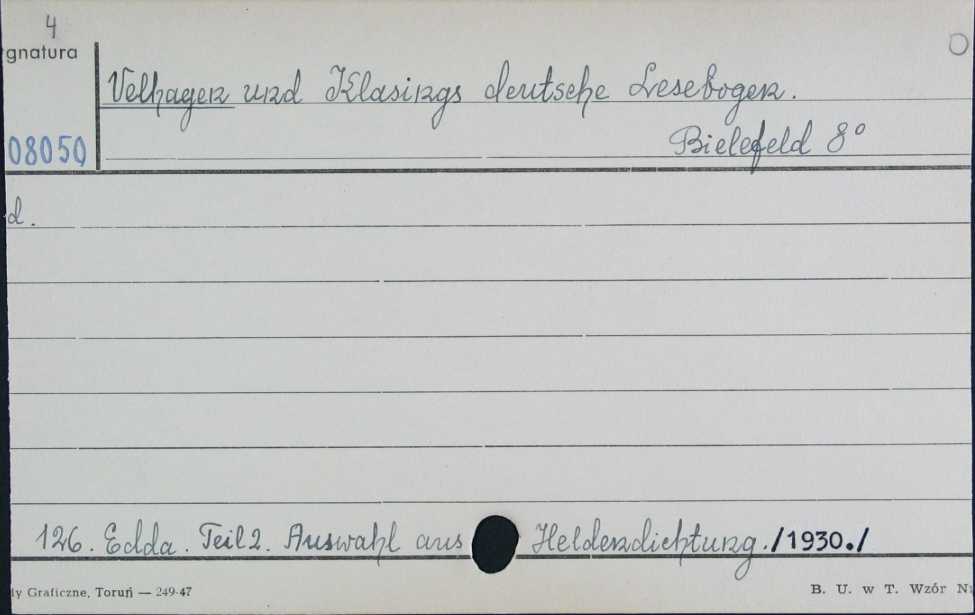 4
gnatura
Velhagen und Klasings deutsche Lesebogen.
08050
Bielefeld 8°
d.
126. Edda. Teil 2. Auswahl aus Heldendichtung. /1930./
ły Graficzne, Toruń — 249-47
B. U. w T. Wzór N